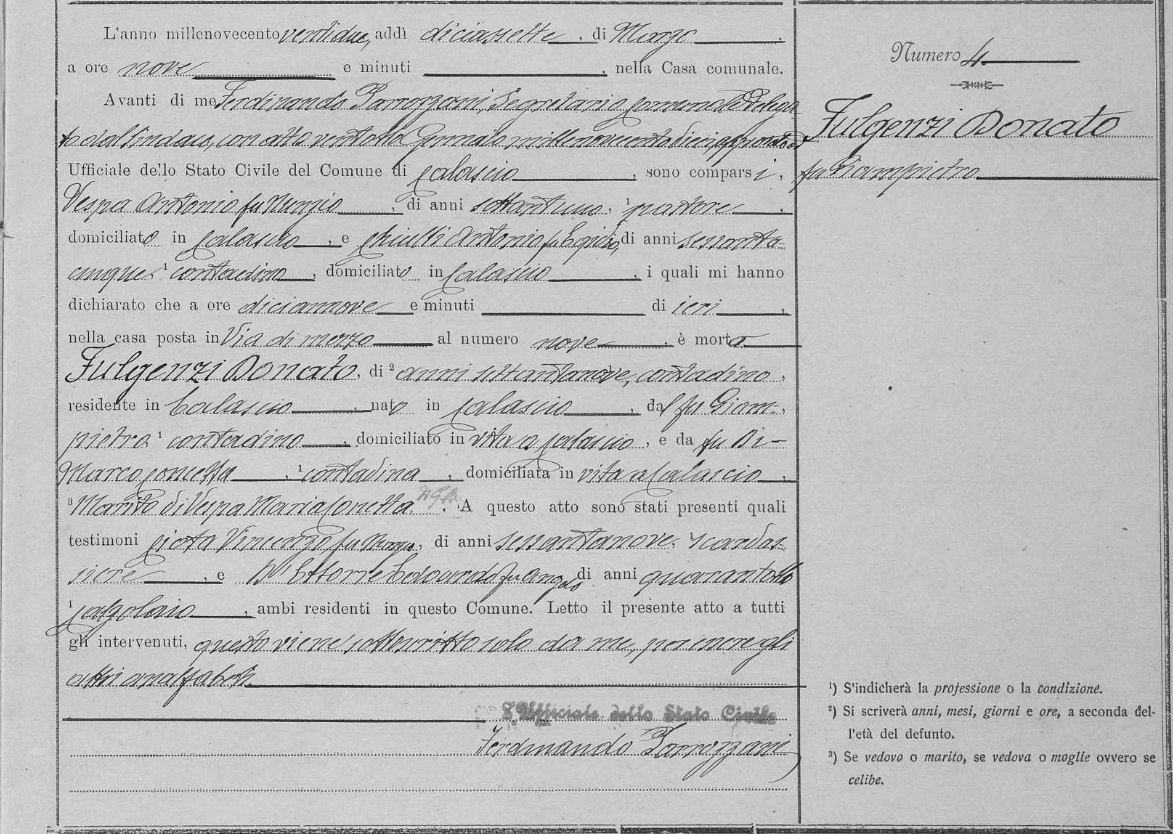 L'anno millenovecento ventidue, addì diciassette, di Marzo,
a ore nove e minuti , nella Casa comunale.
Avanti di me Ferdinando Segretario comunale delega
to dal Sindaco, con atto ventotto Gennaio millenovecento
Ufficiale dello Stato Civile del Comune di Calascio, sono comparsi,
Vespa Antonio fu Nunzio, di anni settantuno, ¹ pastore,
domiciliato in Calascio, e Ciulli Antonio fu di anni sessanta-
cinque ¹ contadino, domiciliato in Calascio, i quali mi hanno
dichiarato che a ore diciannove e minuti di ieri,
nella casa posta in Via di mezzo al numero nove, è morto
Fulgenzi Donato, di ² anni settantanove, contadino,
residente in Calascio nato in Calascio, dal fu Giam-
pietro ¹ contadino, domiciliato in vita a Calascio, e da fu Di-
Marco ¹ contadina, domiciliata in vita a Calascio,
³ Marito di Vespa Maria. A questo atto sono stati presenti quali
testimoni Vincenzo fu, di anni sessantanove, scardas-
siere, e Edoardo fu Angelo di anni quarantotto
¹ calzolaio, ambi residenti in questo Comune. Letto il presente atto a tutti
gli intervenuti, questo viene sottoscritto solo da me, per essere gli
altri analfabeti
L'Ufficiale dello Stato Civile
Ferdinando
Numero 4
Fulgenzi Donato
fu Giampietro
¹) S'indicherà la professione o la condizione.
²) Si scriverà anni, mesi, giorni e ore, a seconda del-
l'età del defunto.
³) Se vedovo o marito, se vedova o moglie ovvero se
celibe.